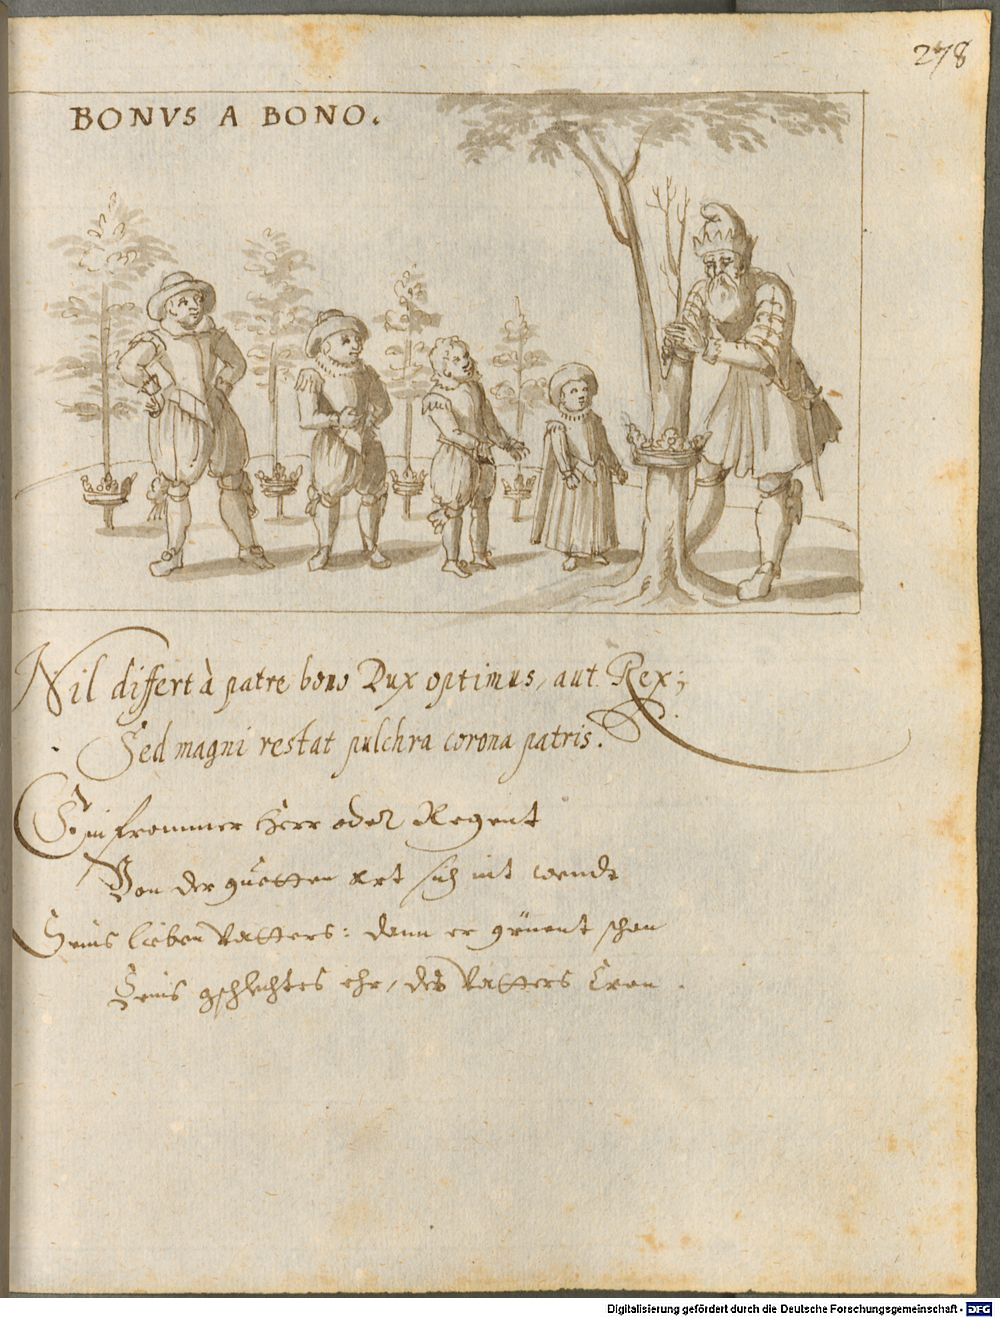 278
BONVS A BONO.
Nil differt à patre bono Dux optimus, aut Rex;
Sed magni restat pulchra corona patris.
Ein frommer Herr oder Regent
Von der guetten Art sich nit wendt
Seins lieben Vatters: dann er grüent schon
Seins gschlechtes ehr, des Vatters Cron.
Digitalisierung gefördert durch die Deutsche Forschungsgemeinschaft - DFG